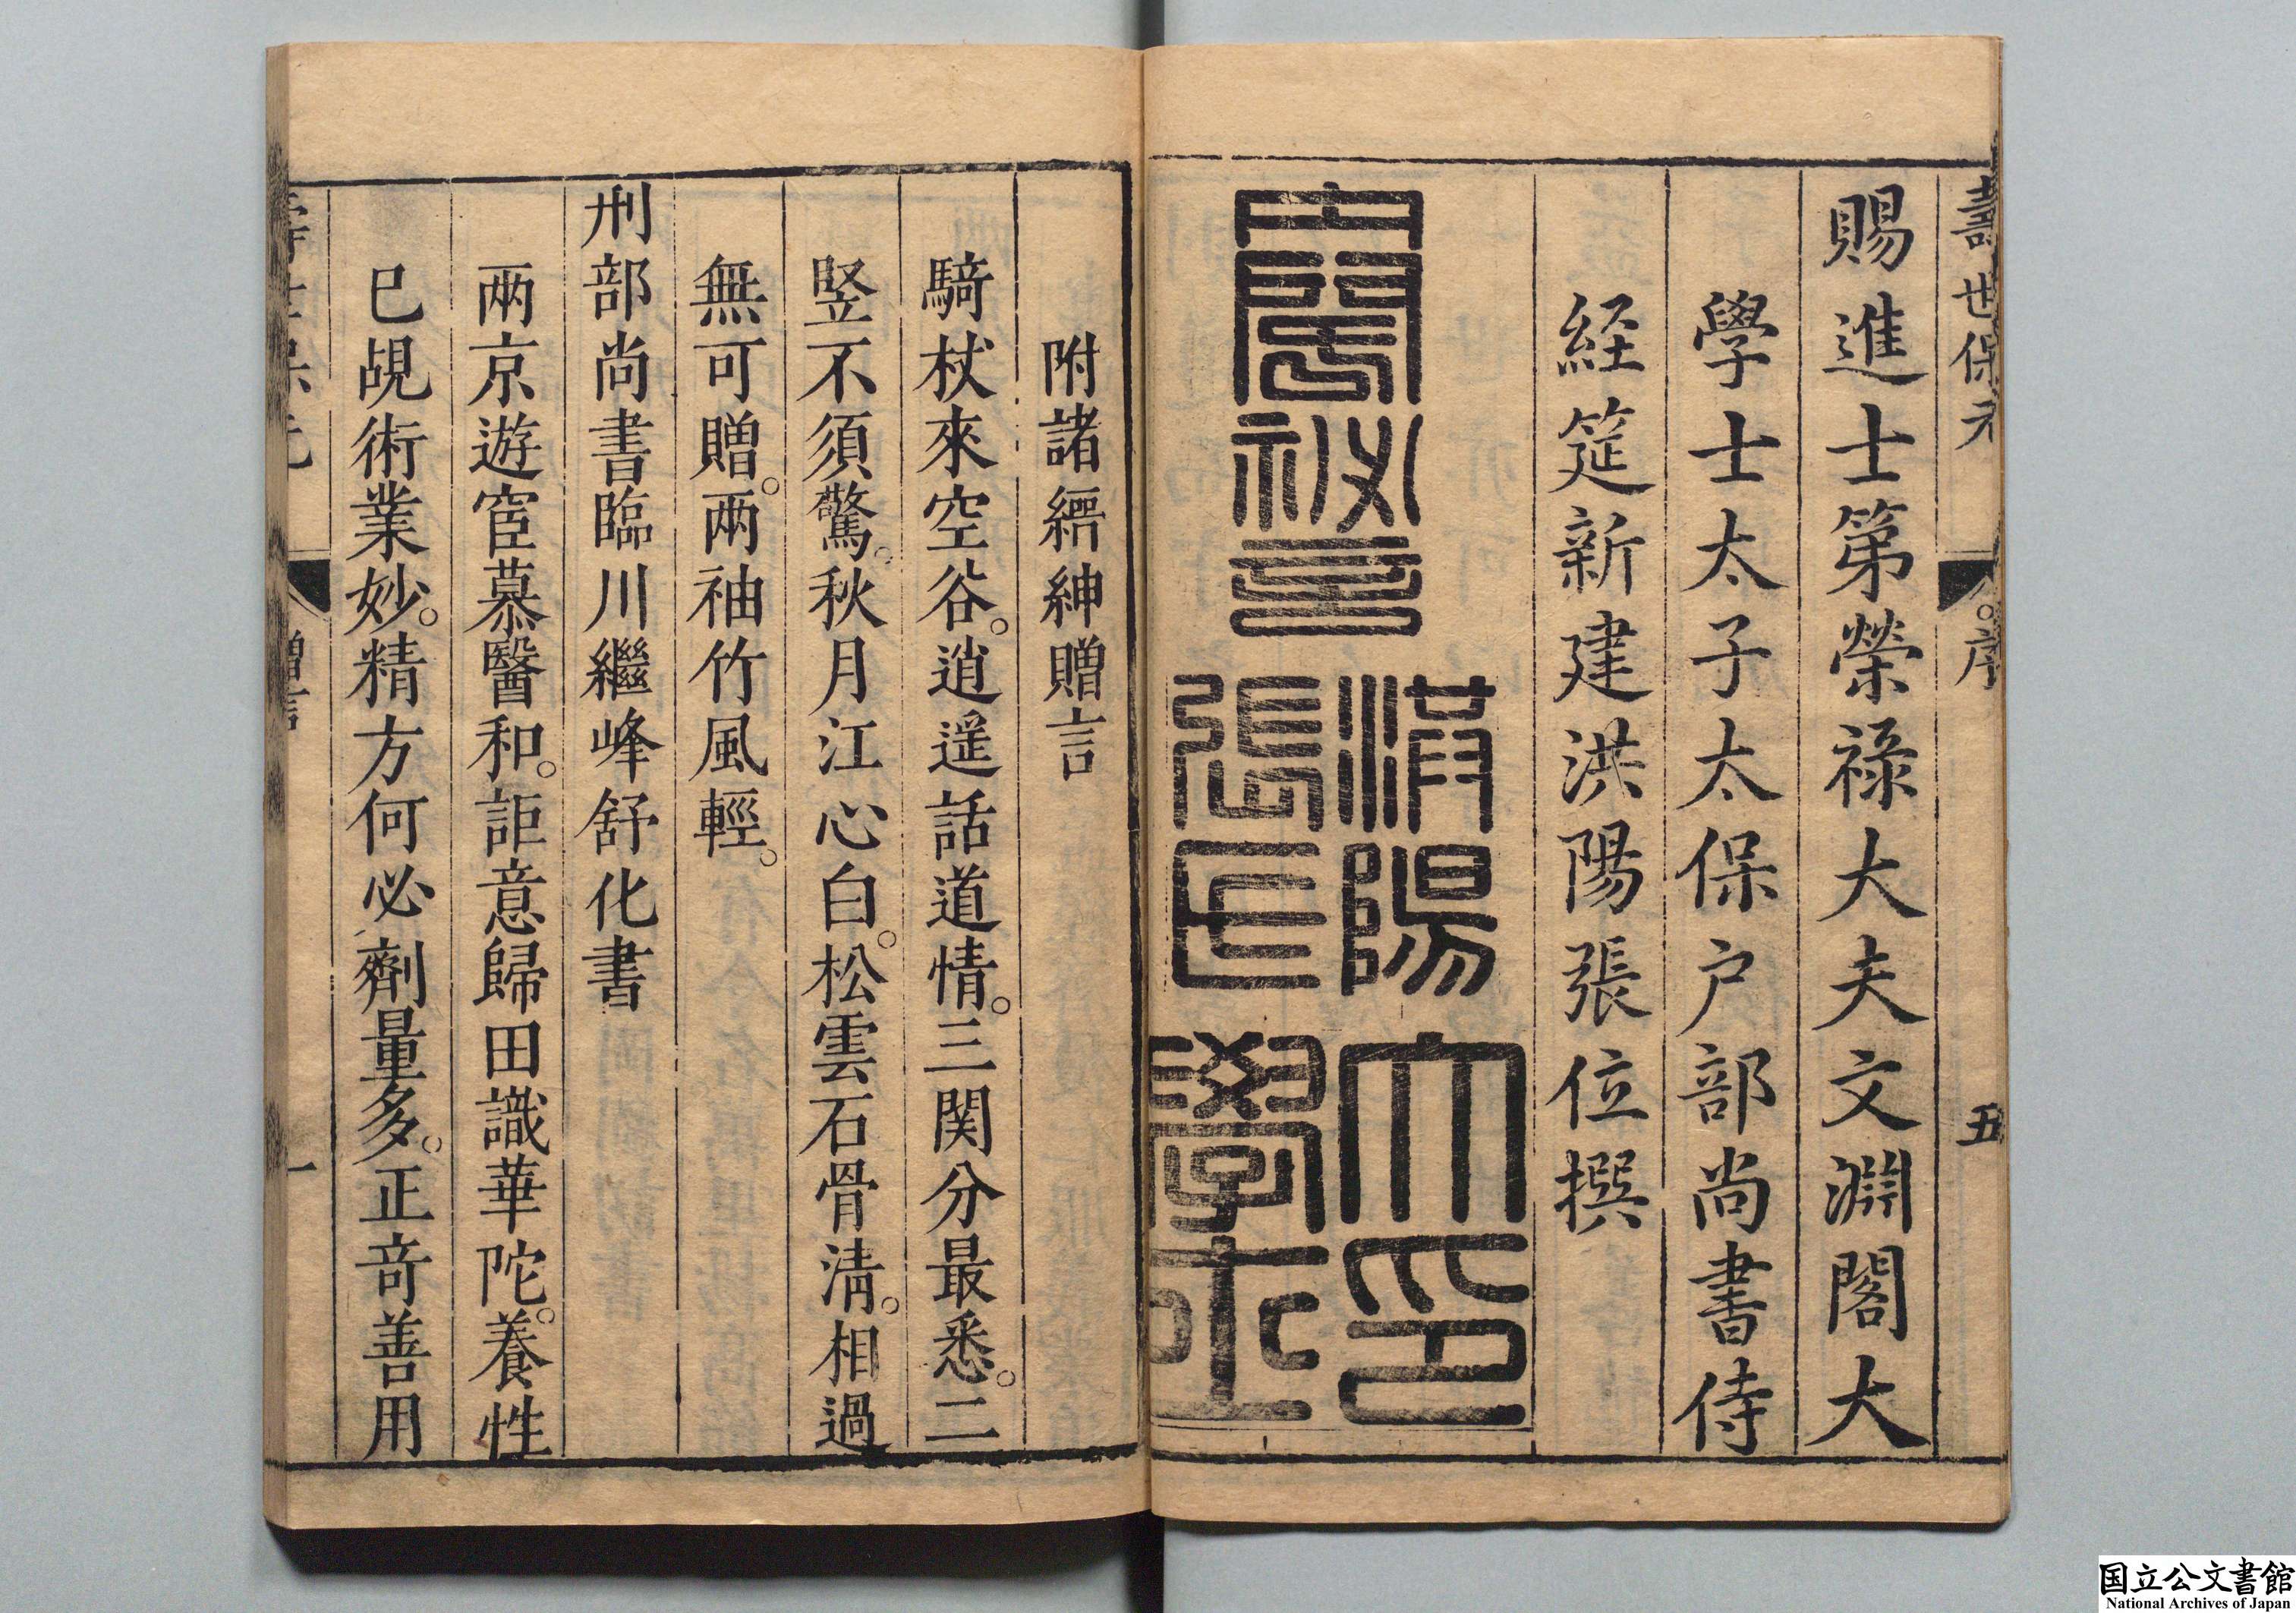 壽世保元
序
五
賜進士第榮祿大夫文淵閣大
學士太子太保户部尚書侍
経筵新建洪陽張位撰
洪陽
張氏
大
學
士
印
附諸縉紳贈言
騎杖來空谷。逍遥話道情。三関分最悉。二
竖不須驚。秋月江心白。松雲石骨清。相過
無可贈。兩袖竹風輕。
刑部尚書臨川繼峰舒化書
兩京遊宦慕醫和。詎意歸田識華陀。養性
已覘術業妙。精方何必劑量多。正奇善用
贈言
一
国立公文書館
National Archives of Japan